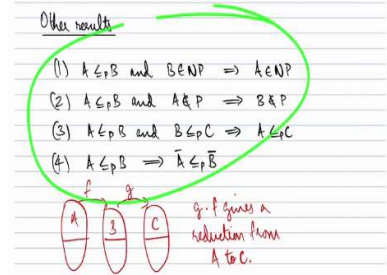 Other results
(1) A ≤p B and B ∈ NP ⟹ A ∈ NP
(2) A ≤p B and A ∉ P ⟹ B ∉ P
(3) A ≤p B and B ≤p C ⟹ A ≤p C
(4) A ≤p B ⟹ Ā ≤p B̄
f g
A B C
g·f gives a
reduction from
A to C.